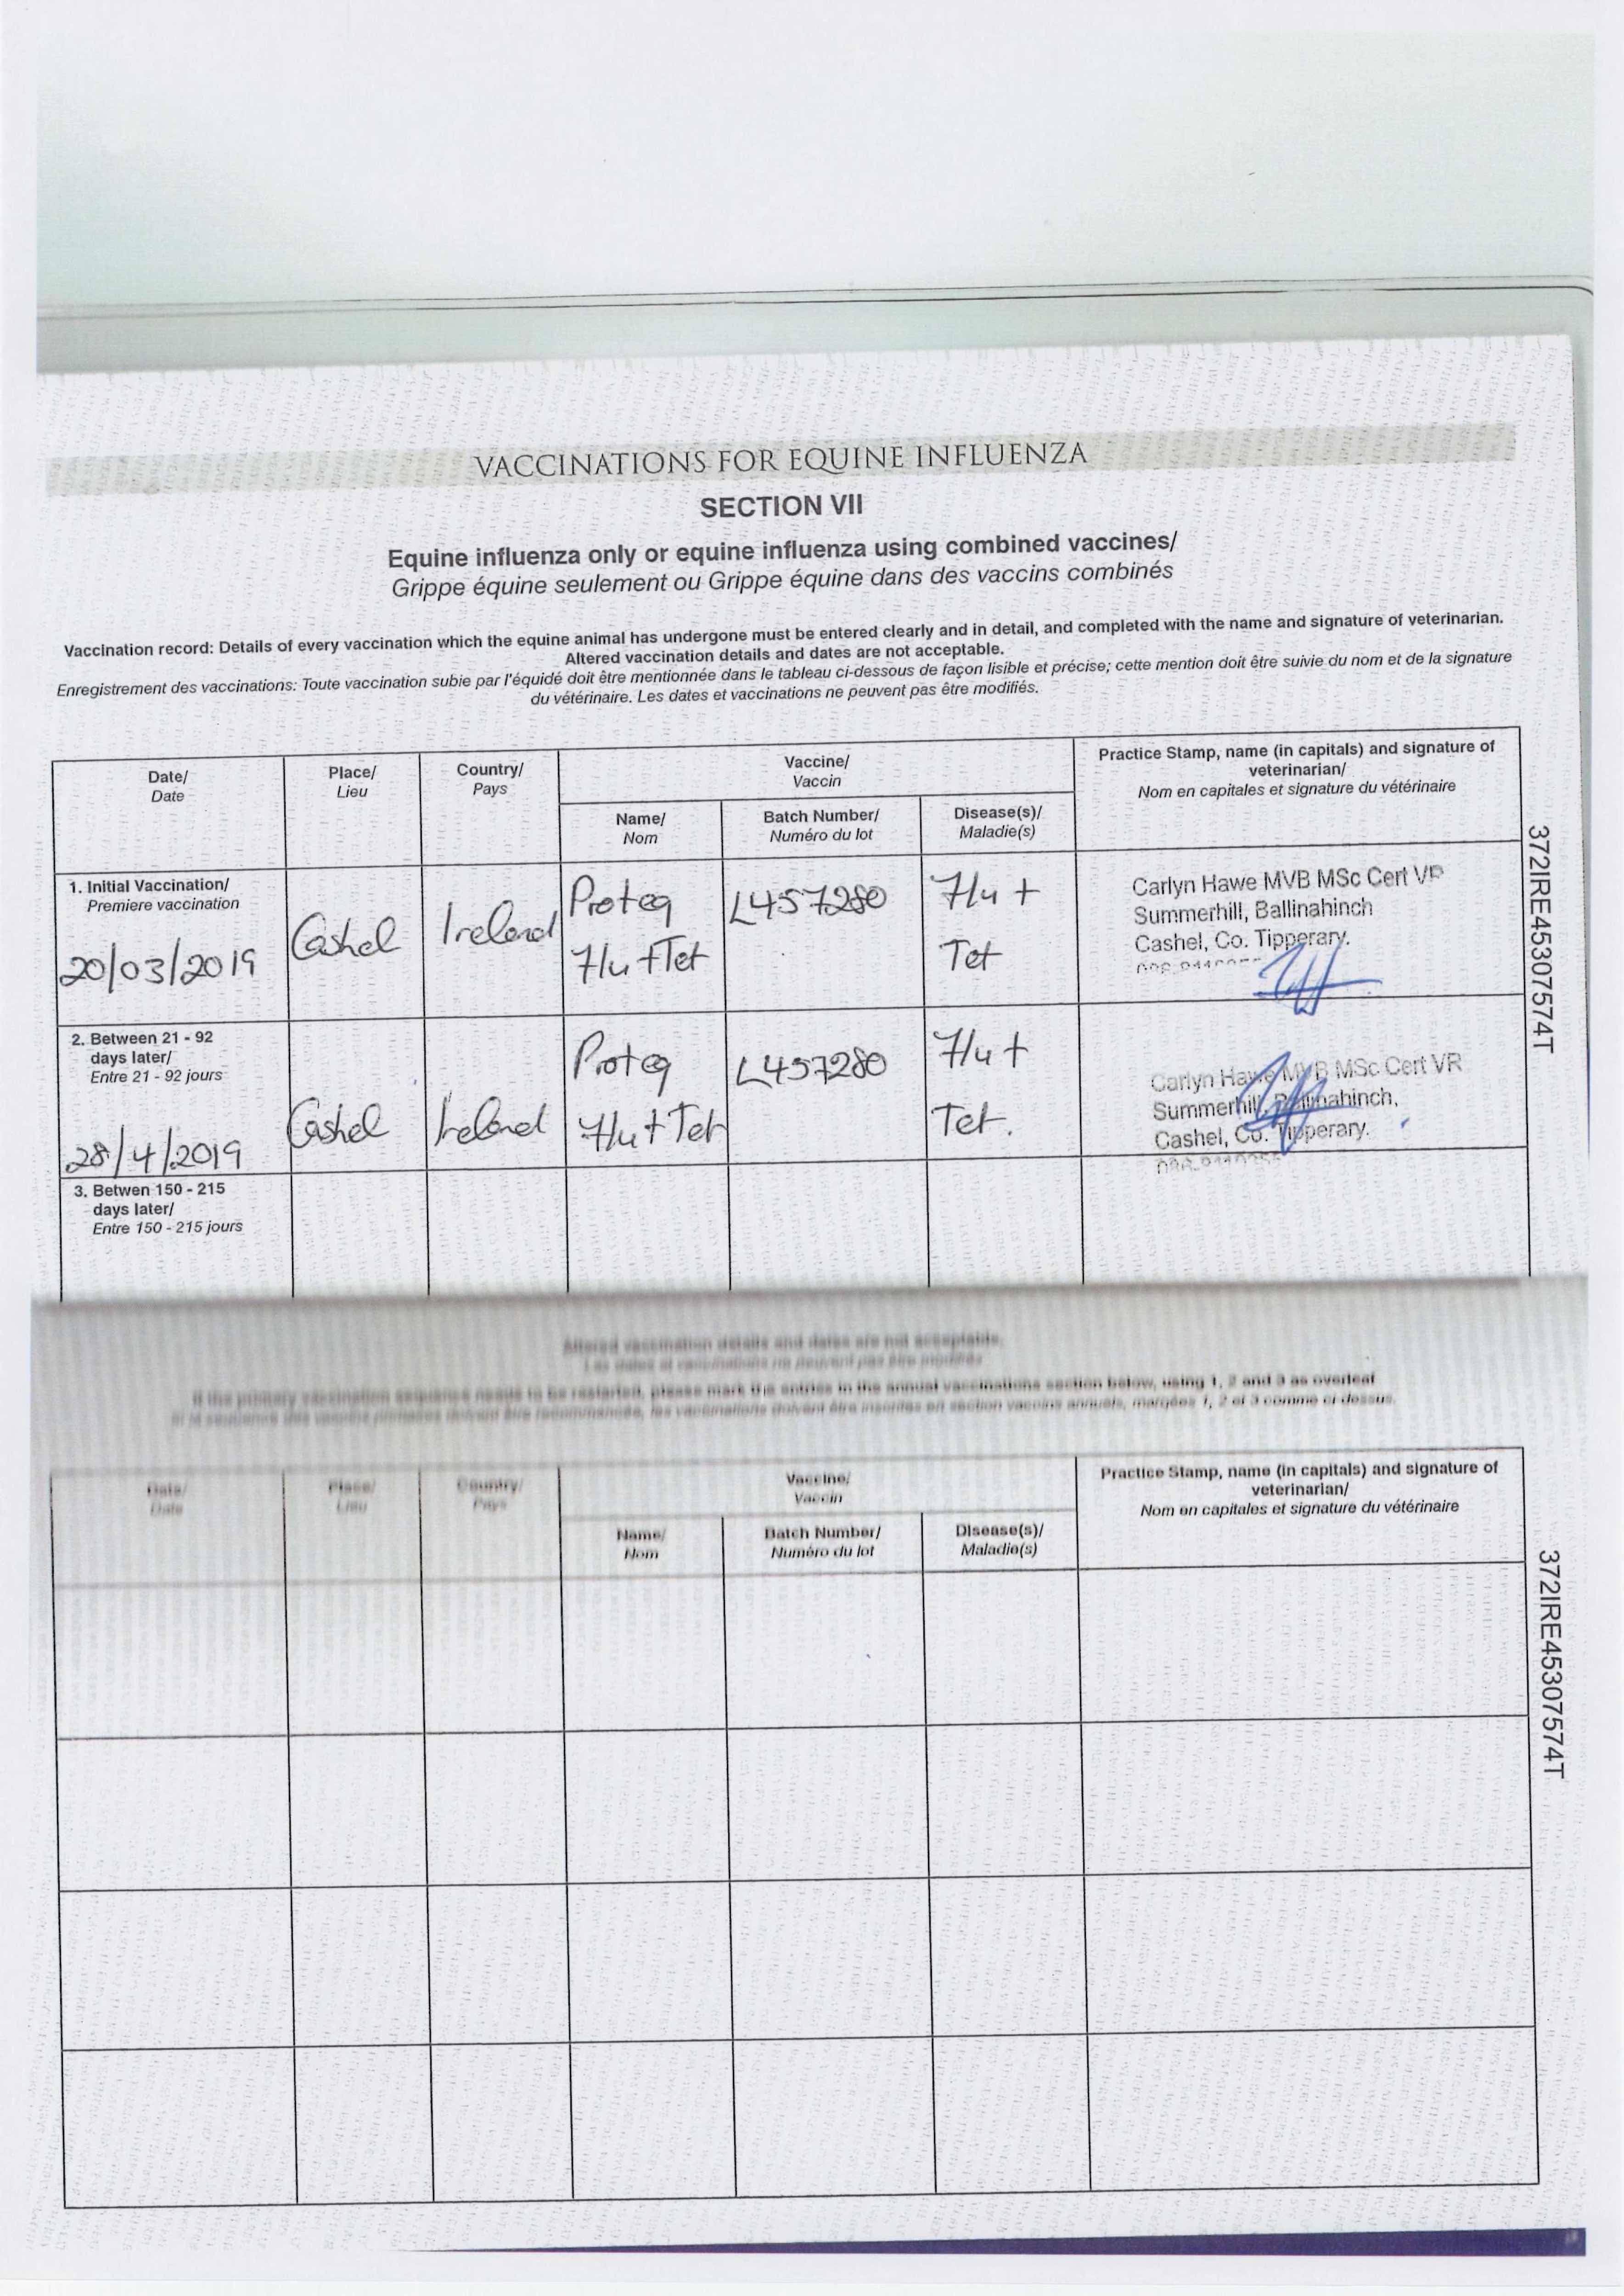 VACCINATIONS FOR EQUINE INFLUENZA
SECTION VII
Equine influenza only or equine influenza using combined vaccines/
Grippe équine seulement ou Grippe équine dans des vaccins combinés
Vaccination record: Details of every vaccination which the equine animal has undergone must be entered clearly and in detail, and completed with the name and signature of veterinarian.
Altered vaccination details and dates are not acceptable.
Enregistrement des vaccinations: Toute vaccination subie par l'équidé doit être mentionnée dans le tableau ci-dessous de façon lisible et précise; cette mention doit être suivie du nom et de la signature
du vétérinaire. Les dates et vaccinations ne peuvent pas être modifiés.
Date/
Date
Place/
Lieu
Country/
Pays
Vaccine/
Vaccin
Name/
Nom
Batch Number/
Numéro du lot
Disease(s)/
Maladie(s)
Practice Stamp, name (in capitals) and signature of
veterinarian/
Nom en capitales et signature du vétérinaire
1. Initial Vaccination/
Premiere vaccination
20/03/2019
Cashel
Ireland
Proteq
Flu+Tet
L457280
Flu +
Tet
Carlyn Hawe MVB MSc Cert VR
Summerhill, Ballinahinch
Cashel, Co. Tipperary.
2. Between 21 - 92
days later/
Entre 21 - 92 jours
28/4/2019
Cashel
Ireland
Proteq
Flu+Tet
L457280
Flu +
Tet.
Carlyn Hawe MVB MSc Cert VR
Summerhill, Ballinahinch,
Cashel, Co. Tipperary.
3. Betwen 150 - 215
days later/
Entre 150 - 215 jours
372IRE45307574T
Altered vaccination details and dates are not acceptable.
Les dates et vaccinations ne peuvent pas être modifiés
If the primary vaccination sequence needs to be restarted, please mark the entries in the annual vaccinations section below, using 1, 2 and 3 as overleaf
Date/
Date
Place/
Lieu
Country/
Pays
Vaccine/
Vaccin
Name/
Nom
Batch Number/
Numéro du lot
Disease(s)/
Maladie(s)
Practice Stamp, name (in capitals) and signature of
veterinarian/
Nom en capitales et signature du vétérinaire
372IRE45307574T